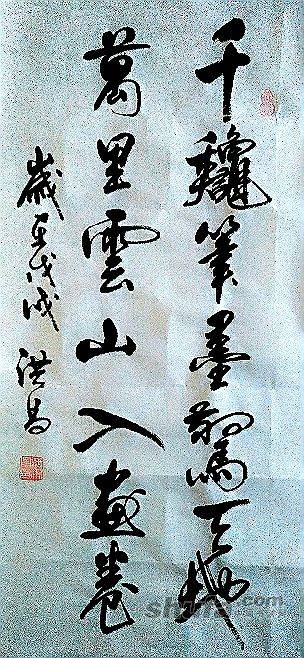 千龝筆墨驚天地
萬里雲山入畫卷
歲在戊戌 洪昌